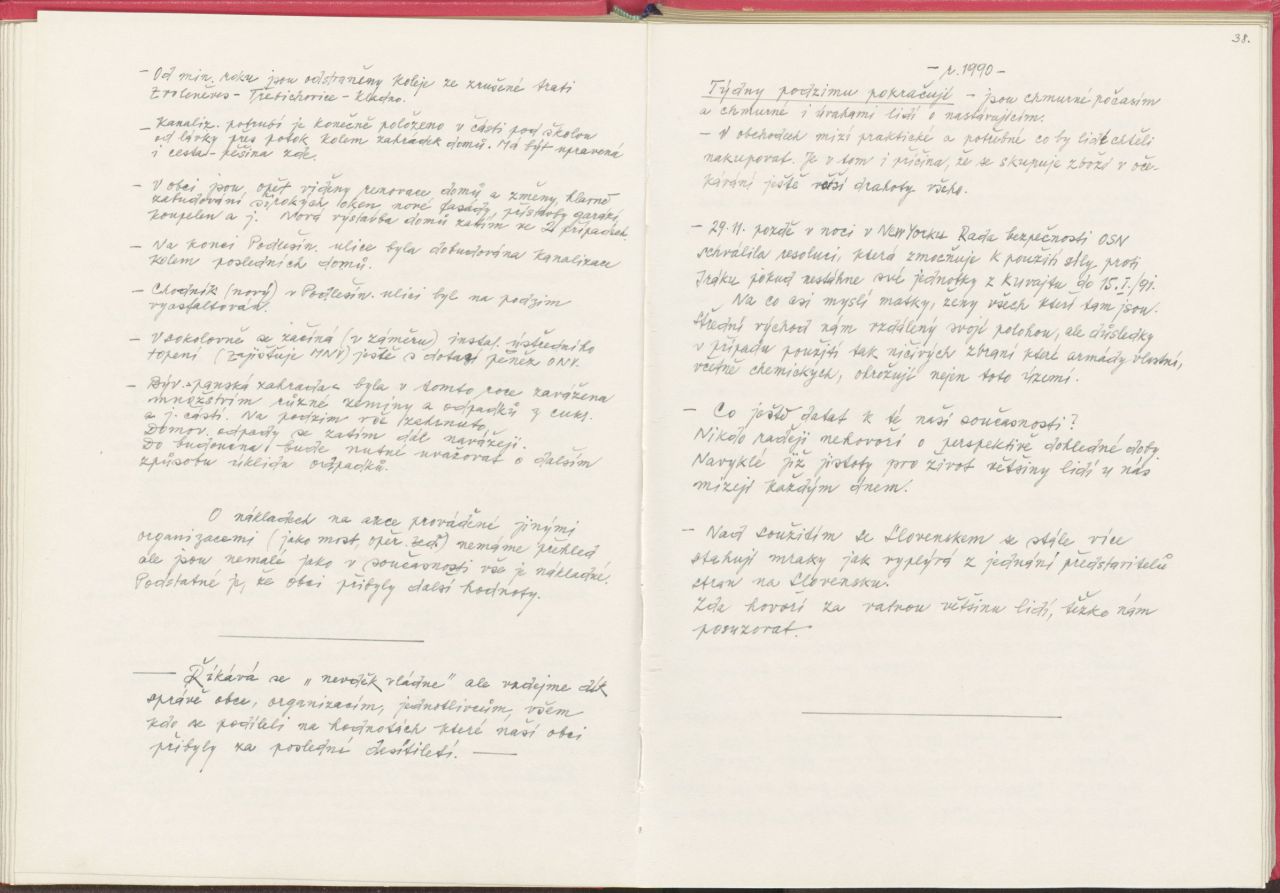 - Od min. roku jsou odstraněny koleje ze zrušené trati
Zvoleněves - Třebichovice - Kladno.
- Kanaliz. potrubí je konečně položeno v části pod školou
od lávky přes potok kolem zahrádek domů. Má být upravená
i cesta - pěšina zde.
- V obci jsou opět viděny renovace domů a změny, hlavně
zabudování širokých oken, nové fasády, přístavby garáží,
koupelen a j. Nová výstavba domů zatím ve 2 případech.
- Na konci Podlešín. ulice byla dobudována kanalizace
kolem posledních domů.
- Chodník (nový) v Podlešín. ulici byl na podzim
vyasfaltován.
- V sokolovně se začíná (v záměru) instal. ústředního
topení (zajišťuje MNV) ještě s dotací peněz ONV.
- Býv. panská zahrada byla v tomto roce zavážena
množstvím různé zeminy a odpadků z cukr.
a j. částí. Na podzim vše zahrnuto.
Domov. odpady se zatím dál navážejí.
Do budoucna bude nutné uvažovat o dalším
způsobu úklidu odpadků.
O nákladech na akce prováděné jinými
organizacemi (jako most, opěr. zeď) nemáme přehled
ale jsou nemalé jako v současnosti vše je nákladné.
Podstatné je, že obci přibyly další hodnoty.
— Říkává se „nevděk vládne" ale vzdejme dík
správě obce, organizacím, jednotlivcům, všem
kdo se podíleli na hodnotách které naší obci
přibyly za poslední desítiletí. —
38.
- r. 1990 -
Týdny podzimu pokračují - jsou chmurné počasím
a chmurné i úvahami lidí o nastávajícím.
- V obchodech mizí praktické a potřebné co by lidé chtěli
nakupovat. Je v tom i příčina, že se skupuje zboží v oče-
kávání ještě větší drahoty všeho.
- 29.11. pozdě v noci v New Yorku Rada bezpečnosti OSN
schválila resoluci, která zmocňuje k použití síly proti
Iráku pokud nestáhne své jednotky z Kuvajtu do 15.I./91.
Na co asi myslí matky, ženy všech kteří tam jsou.
Střední východ nám vzdálený svojí polohou, ale důsledky
v případu použití tak ničivých zbraní které armády vlastní,
včetně chemických, ohrožují nejen toto území.
- Co ještě dodat k té naší současnosti?
Nikdo raději nehovoří o perspektivě dohledné doby
Navyklé již jistoty pro život většiny lidí u nás
mizejí každým dnem.
- Nad soužitím se Slovenskem se stále více
stahují mraky jak vyplývá z jednání představitelů
stran na Slovensku.
Zda hovoří za valnou většinu lidí, těžko nám
posuzovat.